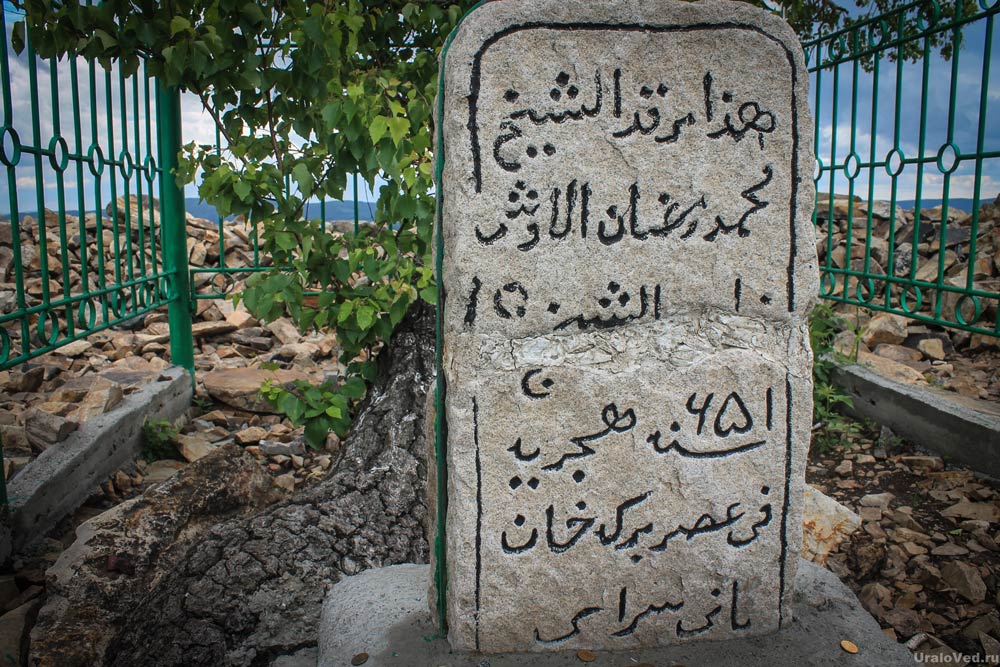 هذا مرقد الشيخ
محمد رمضان الاوشى
١٠ الشهر ١٥
سنه ٦٥١
هجريه
فى عصر بركه خان
بانى سراى
UraloVed.ru